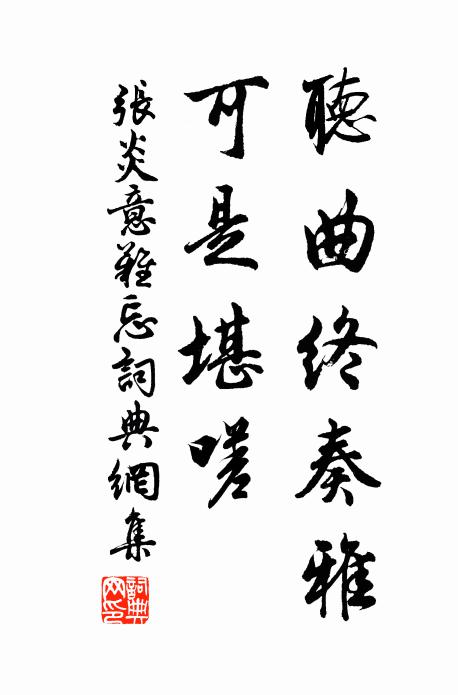 聽曲終奏雅
可是堪嗟
張炎意難忘詞典網集
詞典网印